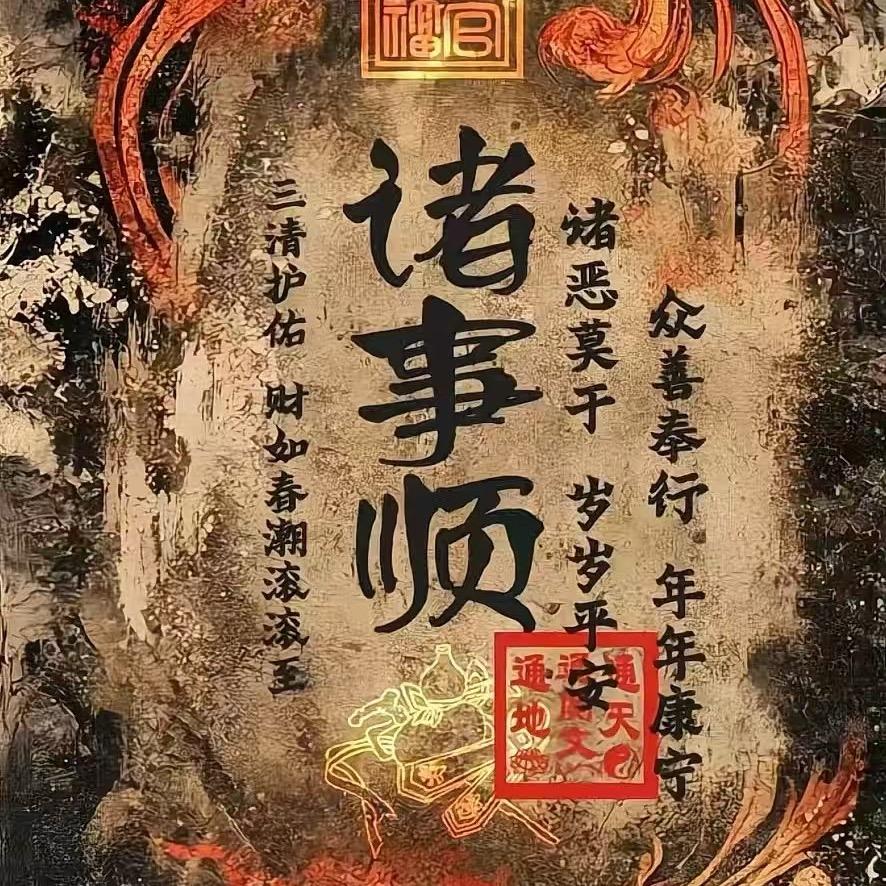 众善奉行 年年康宁
诸恶莫干 岁岁平安
诸事顺
三清护佑 财如春潮滚滚至
通天
通地